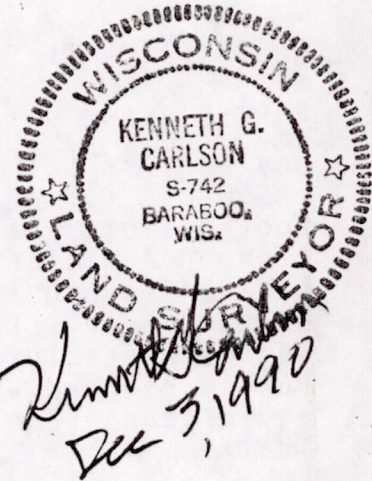 WISCONSIN
KENNETH G.
CARLSON
S-742
BARABOO,
WIS.
LAND SURVEYOR
Kenneth G. Carlson
Dec 3, 1990